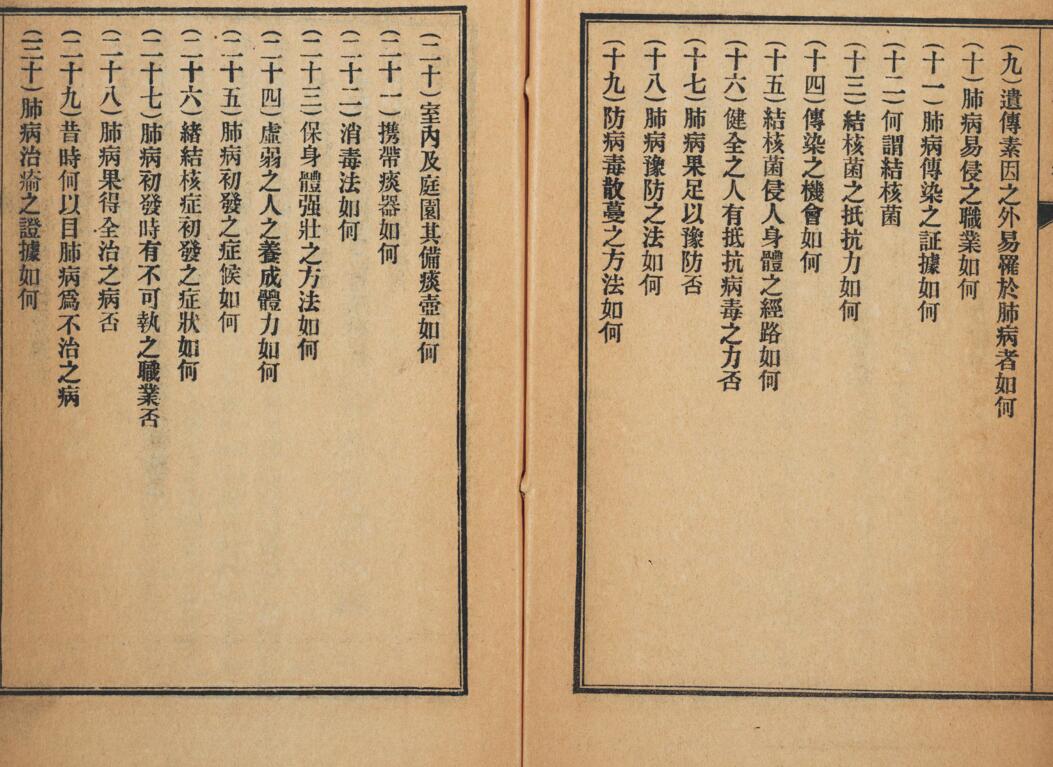 (九)遺傳素因之外易罹於肺病者如何
(十)肺病易侵之職業如何
(十一)肺病傳染之証據如何
(十二)何謂結核菌
(十三)結核菌之抵抗力如何
(十四)傳染之機會如何
(十五)結核菌侵人身體之經路如何
(十六)健全之人有抵抗病毒之力否
(十七)肺病果足以豫防否
(十八)肺病豫防之法如何
(十九)防病毒散蔓之方法如何
(二十)室內及庭園其備痰壺如何
(二十一)携帶痰器如何
(二十二)消毒法如何
(二十三)保身體强壯之方法如何
(二十四)虛弱之人之養成體力如何
(二十五)肺病初發之症候如何
(二十六)緒結核症初發之症狀如何
(二十七)肺病初發時有不可執之職業否
(二十八)肺病果得全治之病否
(二十九)昔時何以目肺病爲不治之病
(三十)肺病治瘉之證據如何